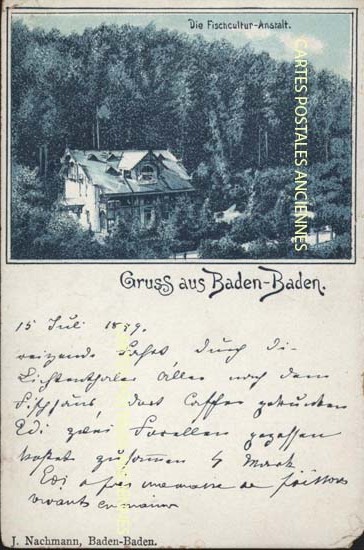 Die Fischcultur-Anstalt.
CARTES POSTALES ANCIENNES
Gruss aus Baden-Baden.
15 Juli 18
reizende Fahrt durch di-
Lichtenthaler Allee nach dem
Fischhaus dort Caffee getrunken
Edi zwei Forellen gegessen
kostet zusammen 4 Mark
Edi a
vivants
J. Nachmann, Baden-Baden.